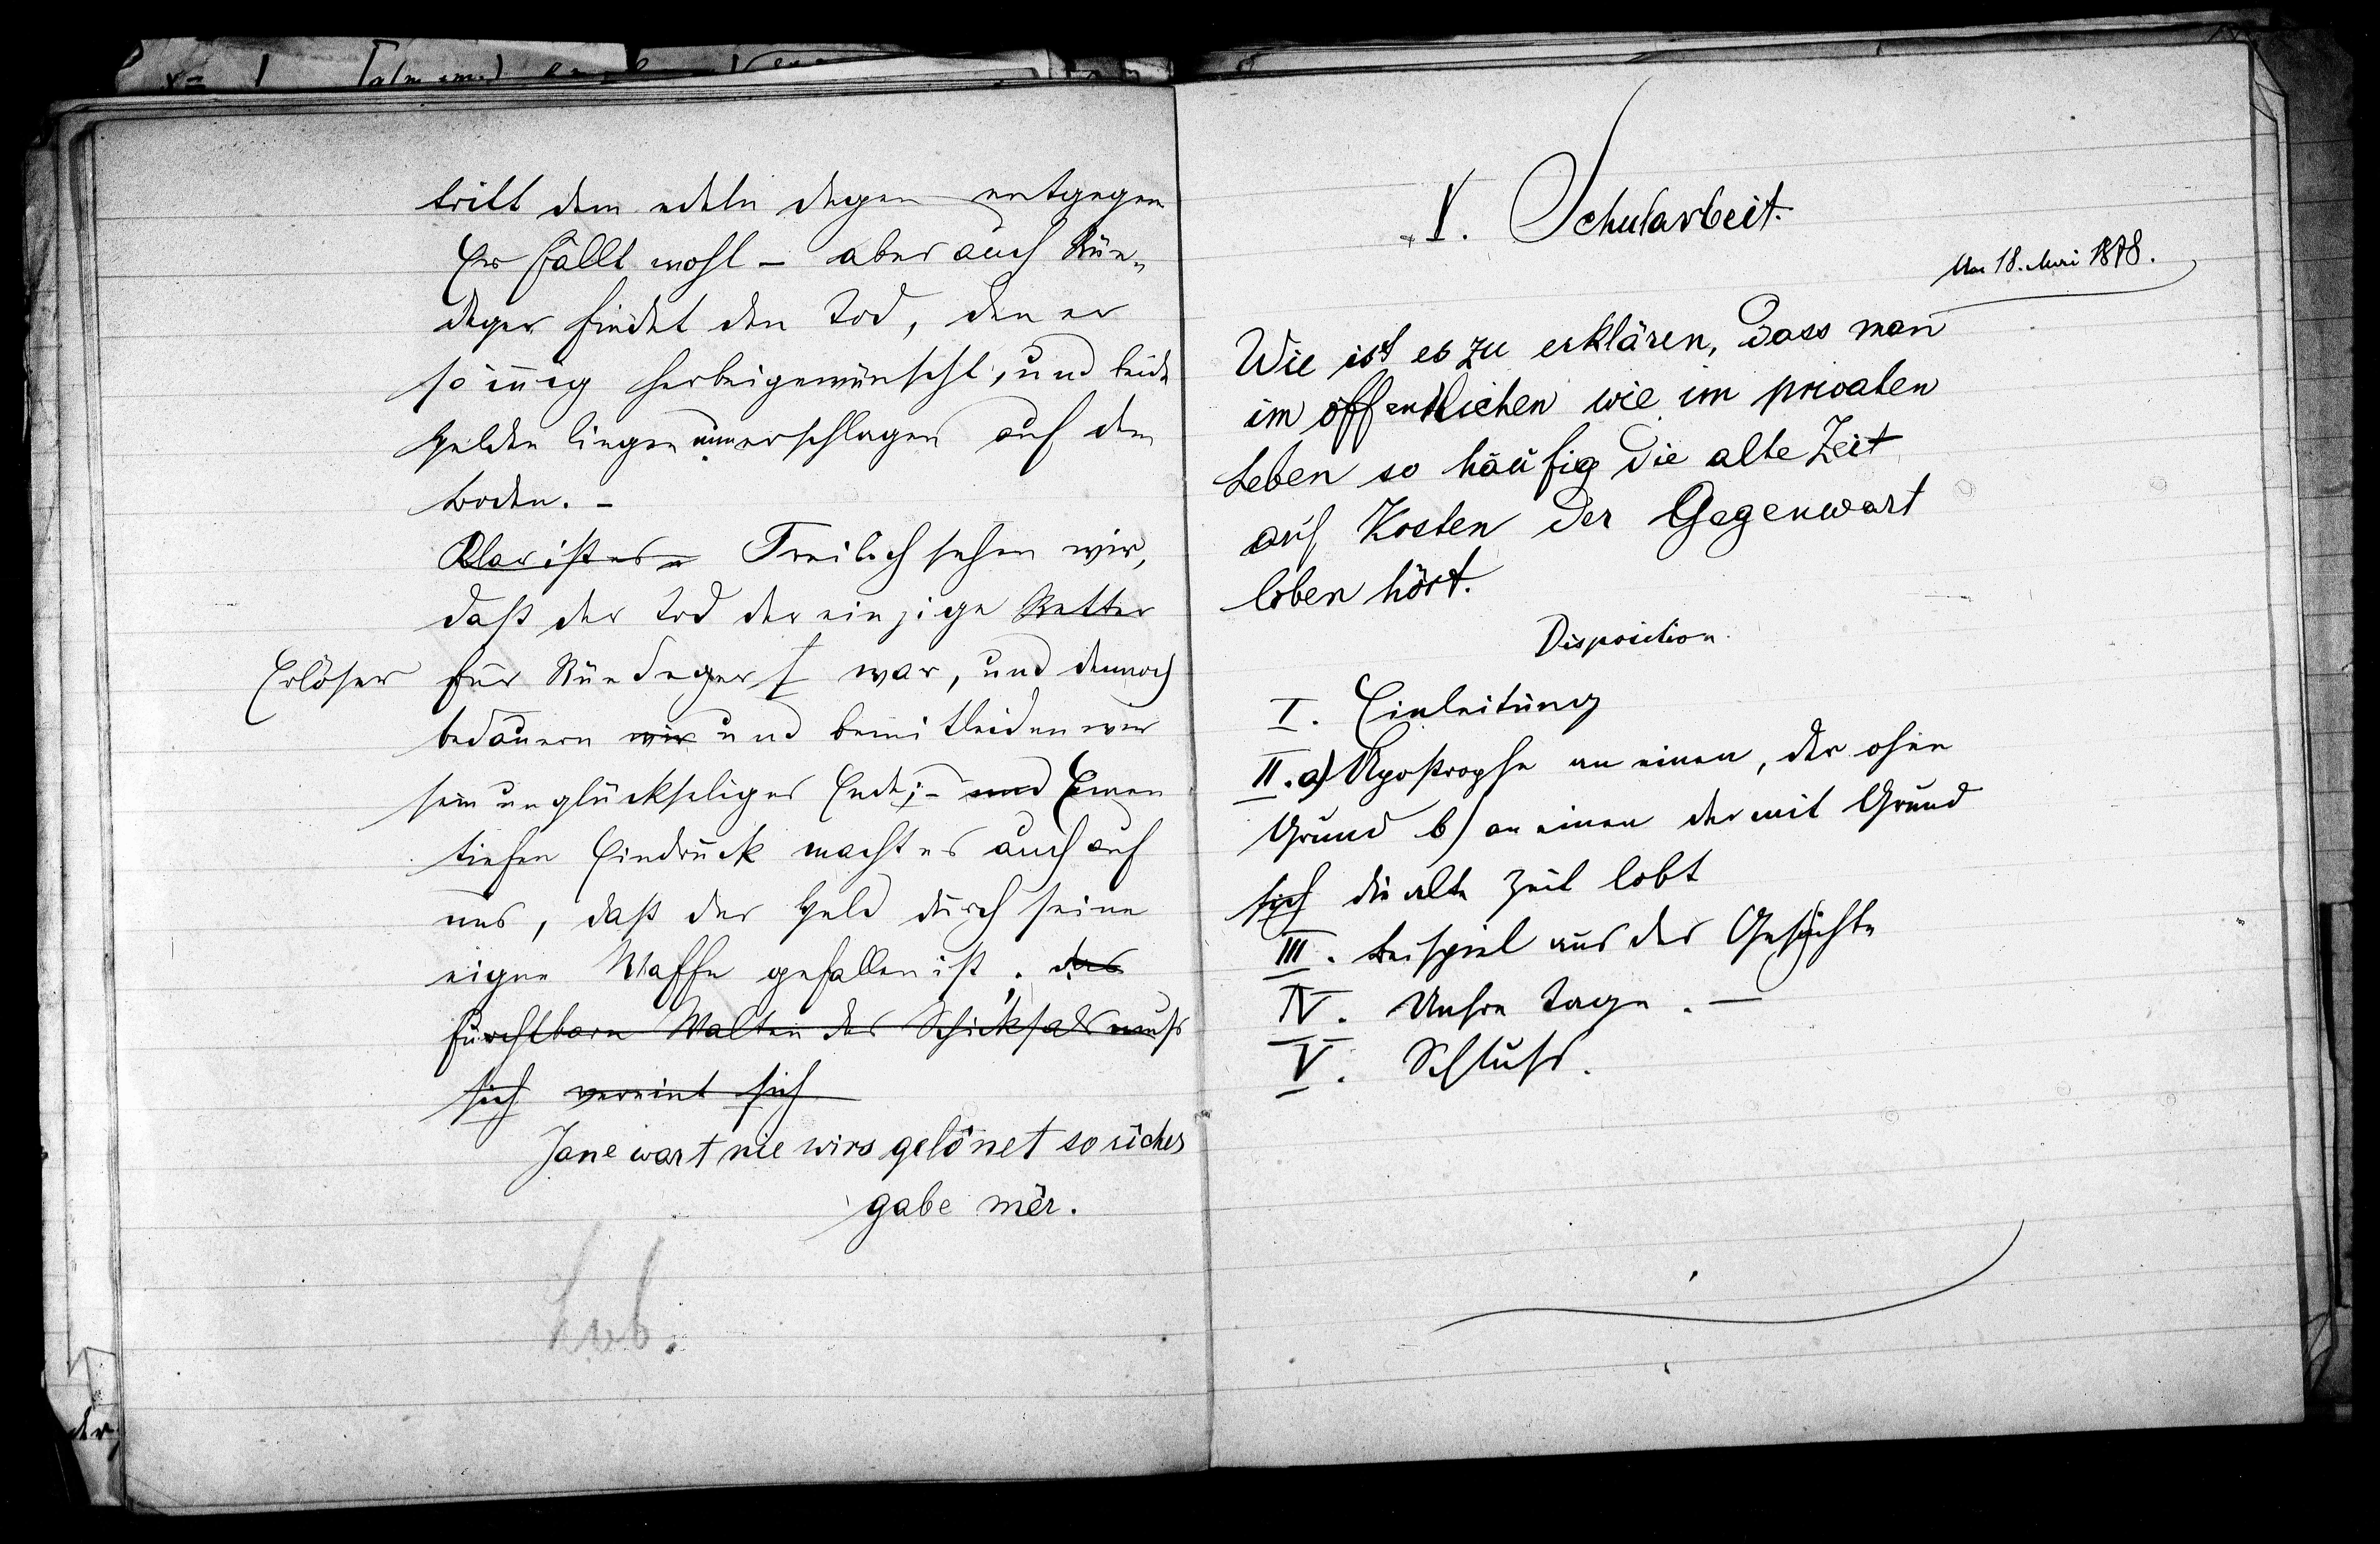 tritt dem edeln Degen entgegen
Er fällt wohl – aber auch Rün-
deger findet den Tod, den er
so innig herbeigewünscht, und beide
Helden liegen nun erschlagen auf dem
Boden. –
Klar ist es – Freilich sehen wir,
daß der Tod der einzige Retter
Erlöser für Ründeger war, und dennoch
bedauern wir und bemitleiden wir
sein unglückseliges Ende; – und Einen
tiefen Eindruck macht es auch auf
uns, daß der Held durch seine
eigene Waffe gefallen ist. das
furchtbare Walten des Schicksals muß
sich vereint sich
Jane wart nie wirs gelônet so rîcher
gabe mêr.
Lob.
V. Schularbeit.
Am 18. Mai 1878.
Wie ist es zu erklären, dass man
im öffentlichen wie im privaten
Leben so häufig die alte Zeit
auf Kosten der Gegenwart
loben hört.
Disposition.
I. Einleitung
II. a) Apostrophe an einen, der ohne
Grund b) an einen der mit Grund
sich die alte Zeit lobt
III. Beispiel aus der Geschichte
IV. Unsre Tage. –
V. Schluß.
der